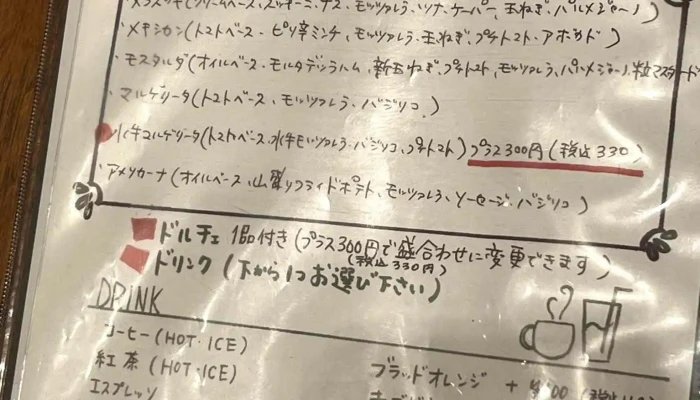 (クリームベース、ズッキーニ、ナス、モッツァレラ、ツナ、ケーパー、玉ねぎ、パルメジャーノ)
・メキシカン(トマトベース・ピリ辛ミンチ、モッツァレラ、玉ねぎ、プチトマト、アボカド)
・モスタルダ(オイルベース、モルタデッラハム、新玉ねぎ、プチトマト、モッツァレラ、パルメジャーノ、粒マスタード
・マルゲリータ(トマトベース、モッツァレラ、バジリコ)
水牛マルゲリータ(トマトベース、水牛モッツァレラ、バジリコ、プチトマト)プラス300円(税込330)
・アメリカーナ(オイルベース、山盛りフライドポテト、モッツァレラ、ソーセージ、バジリコ)
ドルチェ 1品付き(プラス300円で盛合わせに変更できます)
(税込330円)
ドリンク(下から1つお選び下さい)
DRINK
コーヒー(HOT・ICE)
紅茶(HOT・ICE)
ブラッドオレンジ +
エスプレッソ